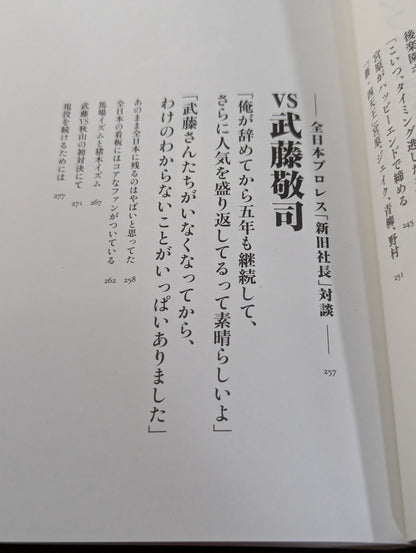 後楽園
「こいつ、タイミング逃した
245
宮原がハッピーエンドで締める
「新」四天王」宮原、ジェイク、青柳、野村
251
——全日本プロレス「新旧社長」対談——
257
VS武藤敬司
「俺が辞めてから五年も継続して、
さらに人気を盛り返してるって素晴らしいよ」
「武藤さんたちがいなくなってから、
わけのわからないことがいっぱいありました」
あのまま全日本に残るのはやばいと思ってた 258
全日本の看板にはコアなファンがついている 262
馬場イズムと猪木イズム 267
武藤VS秋山の初対決にて 271
現役を続けるためには 277